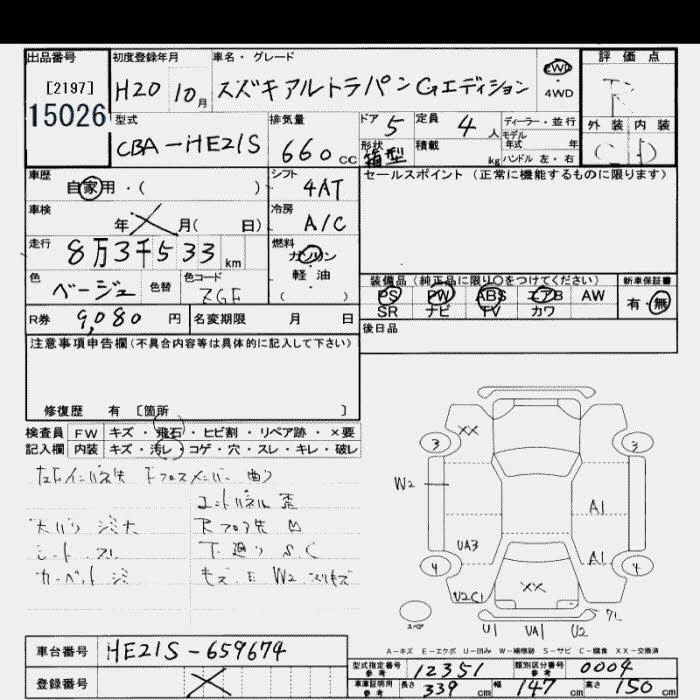 出品番号 初度登録年月 車名・グレード 評価点
[2197] H20 10月 スズキアルトラパンGエディション 2WD ・ 4WD R
15026
型式 排気量 ドア 定員 ディーラー・並行 外装 内装
CBA-HE21S 660cc 5 4人 モデル年式 年 C D
形状 箱型 積載 kg ハンドル 左・右
車歴 自家用・( ) シフト 4AT セールスポイント(正常に機能するものに限ります)
車検 年 X 月( 日) 冷房 A/C
走行 8万3千533km 燃料 ガソリン
軽・油
( )
色 ベージュ 色替 色コード ZGF
装備品(純正品に限り○をつけてください) 新車保証書
PS PW ABS エアB AW 有・無
SR ナビ TV カワ
R券 9,080円 名変期限 月 日 後日品
注意事項申告欄(不具合内容等は具体的に記入して下さい)
修復歴 有 〔箇所 〕
検査員 FW キズ・飛石・ヒビ割・リペア跡・×要
記入欄 内装 キズ・汚レ・コゲ・穴・スレ・キレ・破レ
XX
3 3
W2
A1
UA3 A1
4 4
XX
U2C1
スペア U1 UA1 U2
A-キズ E-エクボ U-凹み W-補修跡 S-サビ C-腐食 XX-交換済
車台番号 HE21S-659674
登録番号 X
型式指定番号 参考 12351 類別区分番号 参考 0004
車庫証明用 参考 長さ 339cm 幅 147cm 高さ 150cm